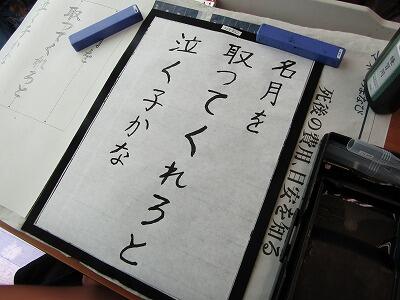 名月を
取ってくれろと
泣く子かな
死後の費用、目安を知る
取ってくれろと